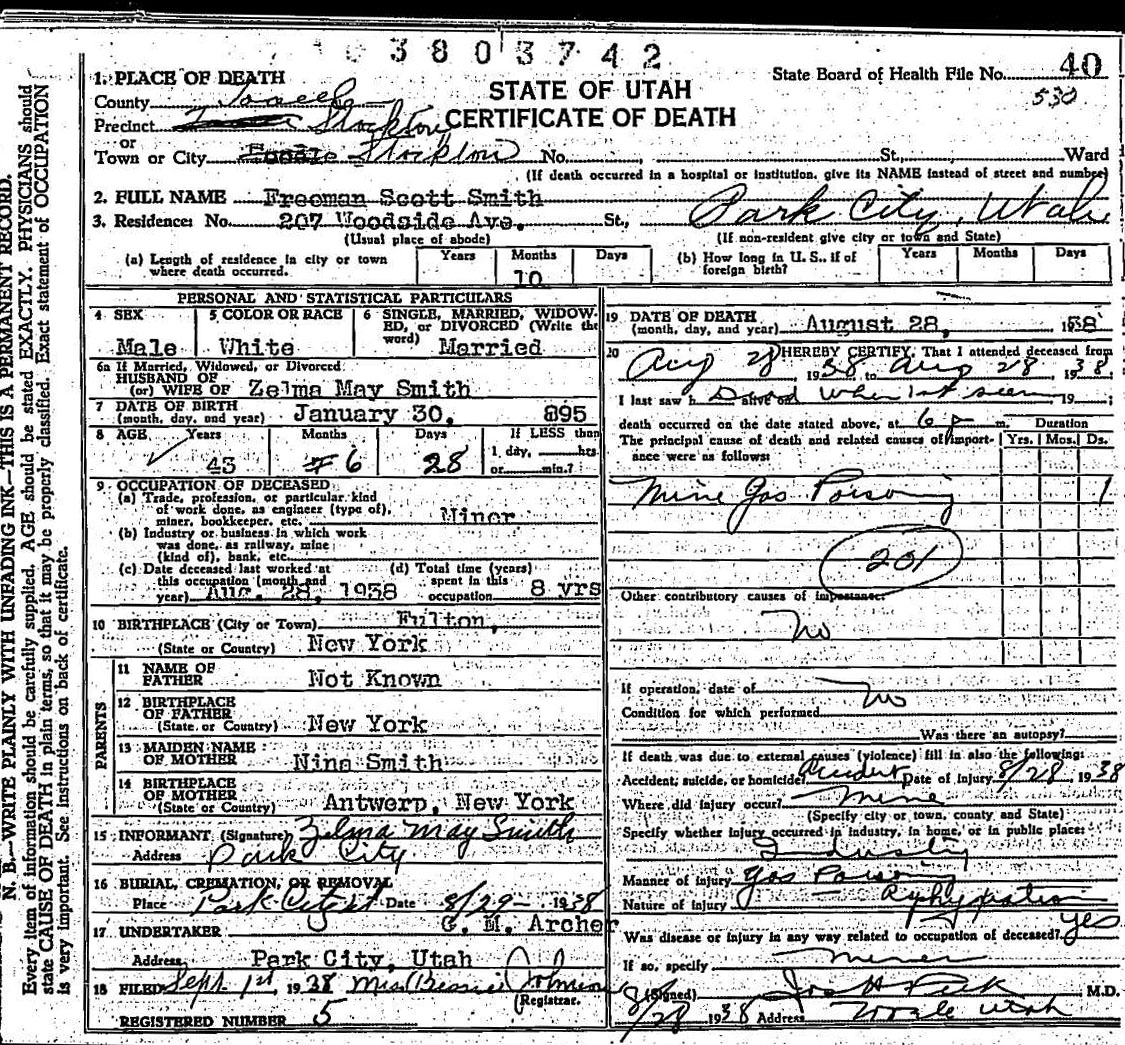 3803742
STATE OF UTAH
CERTIFICATE OF DEATH
State Board of Health File No. 40
530
1. PLACE OF DEATH
County Tooele
Precinct Stockton
or
Town or City Stockton No. St., Ward
(If death occurred in a hospital or institution, give its NAME instead of street and number)
2. FULL NAME Freeman Scott Smith
3. Residence: No. 207 Woodside Ave. St., Park City, Utah
(Usual place of abode) (If non-resident give city or town and State)
(a) Length of residence in city or town where death occurred. Years Months 10 Days
(b) How long in U. S., if of foreign birth? Years Months Days
PERSONAL AND STATISTICAL PARTICULARS
4 SEX Male
5 COLOR OR RACE White
6 SINGLE, MARRIED, WIDOWED, or DIVORCED (Write the word) Married
6a If Married, Widowed, or Divorced
HUSBAND OF
(or) WIFE OF Zelma May Smith
7 DATE OF BIRTH
(month, day, and year) January 30, 895
8 AGE Years 43 Months 6 Days 28 If LESS than 1 day, hrs. or min.?
9 OCCUPATION OF DECEASED
(a) Trade, profession, or particular kind
of work done, as engineer (type of),
miner, bookkeeper, etc. Miner
(b) Industry or business in which work
was done, as railway, mine
(kind of), bank, etc.
(c) Date deceased last worked at
this occupation (month and
year) Aug. 28, 1938
(d) Total time (years)
spent in this
occupation 8 yrs
10 BIRTHPLACE (City or Town) Fulton,
(State or Country) New York
PARENTS
11 NAME OF
FATHER Not Known
12 BIRTHPLACE
OF FATHER
(State or Country) New York
13 MAIDEN NAME
OF MOTHER Nina Smith
14 BIRTHPLACE
OF MOTHER
(State or Country) Antwerp, New York
15 INFORMANT (Signature) Zelma May Smith
Address Park City
16 BURIAL, CREMATION, OR REMOVAL
Place Park City Date 8/29- 1938
17 UNDERTAKER G. M. Archer
Address Park City, Utah
18 FILED Sept. 1st, 1938 Mrs Bessie Johnson
(Registrar.
REGISTERED NUMBER 5
19 DATE OF DEATH
(month, day, and year) August 28, 1938
20 I HEREBY CERTIFY, That I attended deceased from
Aug 28 1938 to Aug 28 1938
I last saw h alive on Dead when 1st seen 19 ;
death occurred on the date stated above, at 6 P m.
The principal cause of death and related causes of importance were as follows:
Duration
Yrs. Mos. Ds.
Mine Gas Poisoning 1
201
Other contributory causes of importance:
No
If operation, date of No
Condition for which performed
Was there an autopsy?
If death was due to external causes (violence) fill in also the following:
Accident, suicide, or homicide? Accident Date of injury 8/28 1938
Where did injury occur? Mine
(Specify city or town, county and State)
Specify whether injury occurred in industry, in home, or in public place:
Industry
Manner of injury Gas Poisoning
Nature of injury Asphyxiation
Was disease or injury in any way related to occupation of deceased? Yes
If so, specify Miner
(Signed) Jos H Peck M.D.
8/28 1938 Address Tooele Utah
N. B.—WRITE PLAINLY WITH UNFADING INK—THIS IS A PERMANENT RECORD.
Every item of information should be carefully supplied. AGE should be stated EXACTLY. PHYSICIANS should
state CAUSE OF DEATH in plain terms, so that it may be properly classified. Exact statement of OCCUPATION
is very important. See instructions on back of certificate.